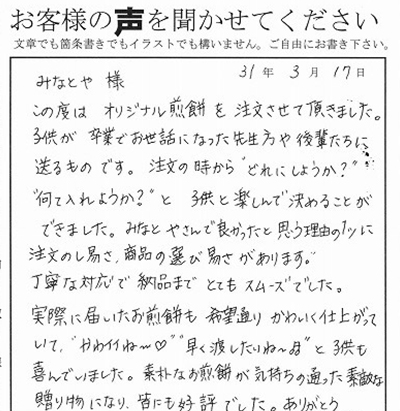 お客様の声を聞かせてください
文章でも箇条書きでもイラストでも構いません。ご自由にお書き下さい。
31年 3月 17日
みなとや 様
この度は オリジナル煎餅を 注文させて頂きました。
子供が 卒業でお世話になった先生方や 後輩たちに
送るものです。注文の時から "どれにしようか?"
"何て入れようか?" と 子供と楽しんで決めることが
できました。みなとやさんで良かったと思う理由の1つに
注文のし易さ、商品の選び易さがあります。
丁寧な対応で 納品まで とても スムーズでした。
実際に届いたお煎餅も 希望通り かわいく仕上がって
いて、"かわイイね〜♡" "早く渡したいね〜" と 子供も
喜んでいました。素朴なお煎餅が気持ちの通った素敵な
贈り物になり、皆にも好評でした。ありがとう